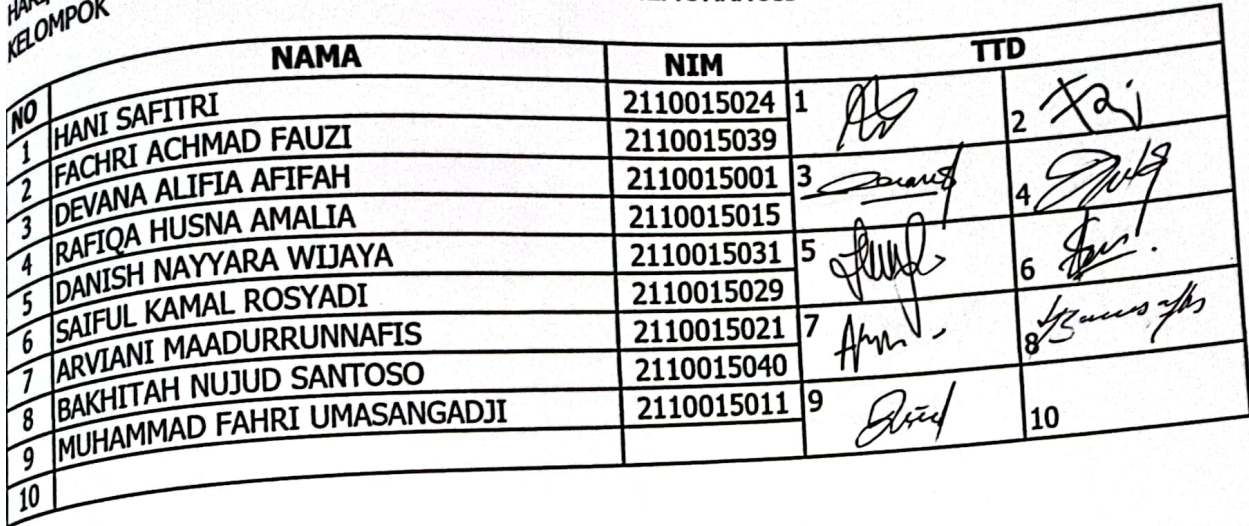 KELOMPOK
NO NAMA NIM TTD
1 HANI SAFITRI 2110015024 1
2 FACHRI ACHMAD FAUZI 2110015039 2
3 DEVANA ALIFIA AFIFAH 2110015001 3
4 RAFIQA HUSNA AMALIA 2110015015 4
5 DANISH NAYYARA WIJAYA 2110015031 5
6 SAIFUL KAMAL ROSYADI 2110015029 6
7 ARVIANI MAADURRUNNAFIS 2110015021 7
8 BAKHITAH NUJUD SANTOSO 2110015040 8
9 MUHAMMAD FAHRI UMASANGADJI 2110015011 9
10 10